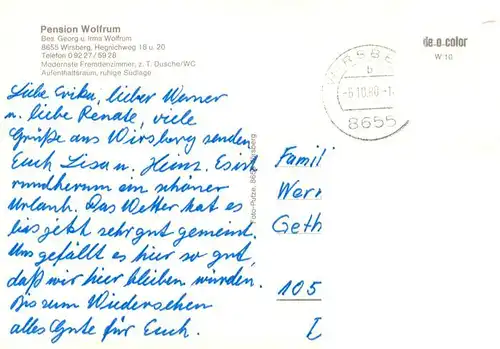 Pension Wolfrum
Bes. Georg u. Irma Wolfrum
8655 Wirsberg, Hegnichweg 18 u. 20
Telefon 0 92 27 / 59 28
Modernste Fremdenzimmer, z. T. Dusche/WC
Aufenthaltsraum, ruhige Südlage
de o color
W 10
WIRSBE
b
-6.10.80-1
8655
Liebe Erika, lieber Werner
u. liebe Renate, viele
Grüße aus Wirsberg senden
Euch Lisa u. Heinz. Es ist
rundherum ein schöner
Urlaub. Das Wetter hat es
bis jetzt sehr gut gemeint.
Uns gefällt es hier so gut,
daß wir hier bleiben würden.
Bis zum Wiedersehen
alles Gute für Euch.
Foto-Putze, 8655 Wirsberg
Famil
Wern
Geth
105